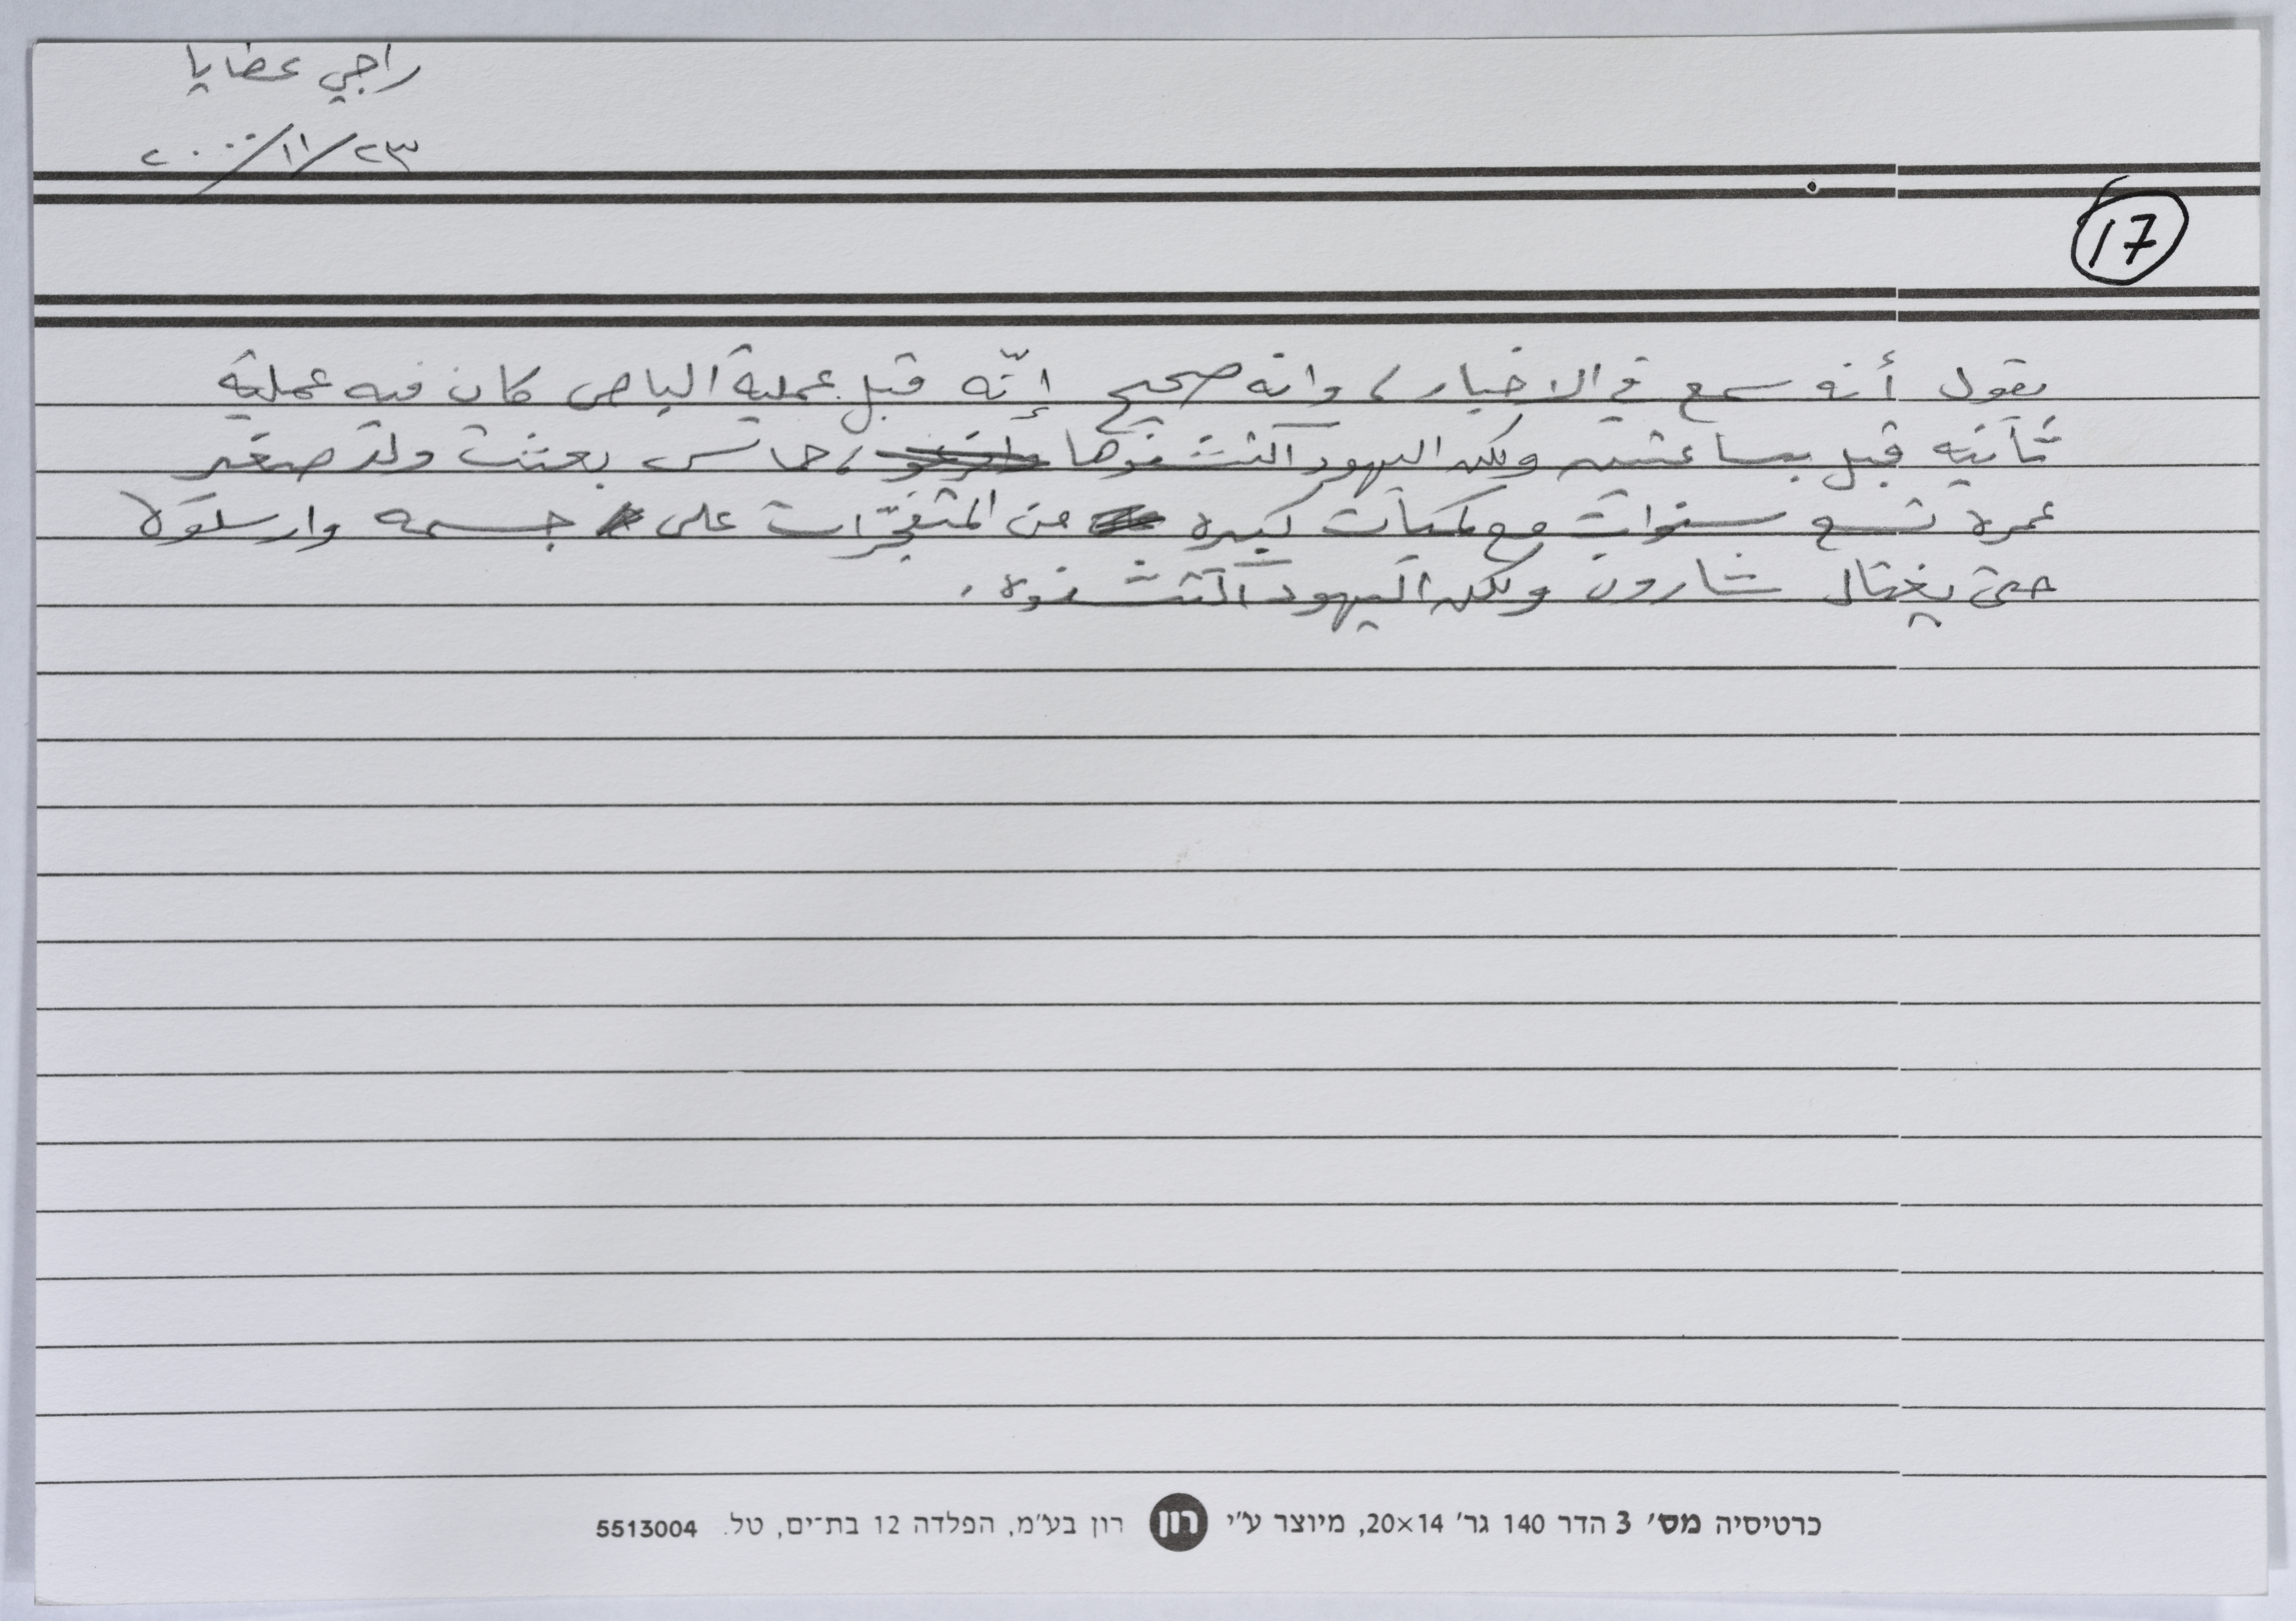 راجي عطايا
٢٣/١١/٢٠٠٠
17
يقول أنه سمع في الاخبار، وانه صحيح إنّه قبل عملية الباص كان فيه عملية
ثانيه قبل بساعتين ولكن اليهود اكتشفوها، حماس بعثت ولد صغير
عمره تسع سنوات مع كميات كبيره من المتفجّرات على جسمه وارسلوه
حتى يغتال شارون ولكن اليهود اكتشفوه.
כרטיסיה מס׳ 3 הדר 140 גר׳ 20×14, מיוצר ע״י רון רון בע״מ, הפלדה 12 בת־ים, טל. 5513004